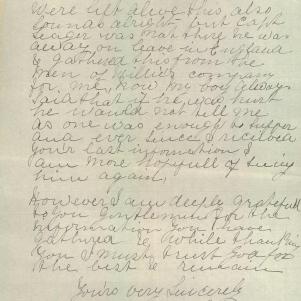 were all alive this, also
Lou was alright, but Capt
was not there he was
away on leave in England
& gathered this from the
men of Willie's company
for me, now my boy always
said that if he was hurt
he would not tell me
as one was enough to suffer
and ever since I received
your last information I
am more hopefull of seeing
him again.
However I am deeply grateful
to you Gentlemen for the
information you have
gathered & while thanking
you I must trust God for
the best & remain
Yours very Sincerely